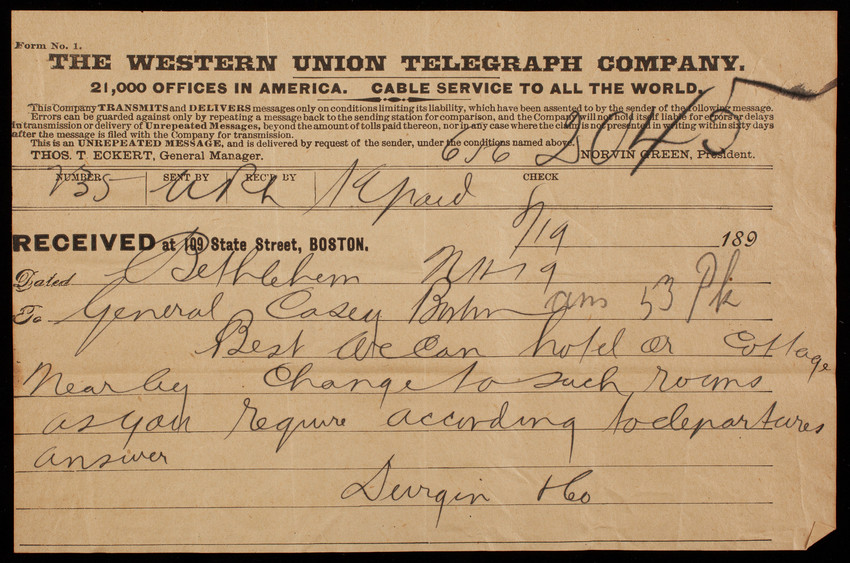 Form No. 1.
THE WESTERN UNION TELEGRAPH COMPANY.
21,000 OFFICES IN AMERICA. CABLE SERVICE TO ALL THE WORLD.
This Company TRANSMITS and DELIVERS messages only on conditions limiting its liability, which have been assented to by the sender of the following message.
Errors can be guarded against only by repeating a message back to the sending station for comparison, and the Company will not hold itself liable for errors or delays
in transmission or delivery of Unrepeated Messages, beyond the amount of tolls paid thereon, nor in any case where the claim is not presented in writing within sixty days
after the message is filed with the Company for transmission.
This is an UNREPEATED MESSAGE, and is delivered by request of the sender, under the conditions named above.
THOS. T. ECKERT, General Manager. 656 2045 NORVIN GREEN, President.
NUMBER SENT BY REC'D BY CHECK
735 paid
RECEIVED at 109 State Street, BOSTON. 8/19 189
Dated Bethlehem NH 19
To General Casey Boston 53 Pk
Best we can hotel or Cottage
Nearby Change to such rooms
as you require according to departures
answer
Durgin & Co